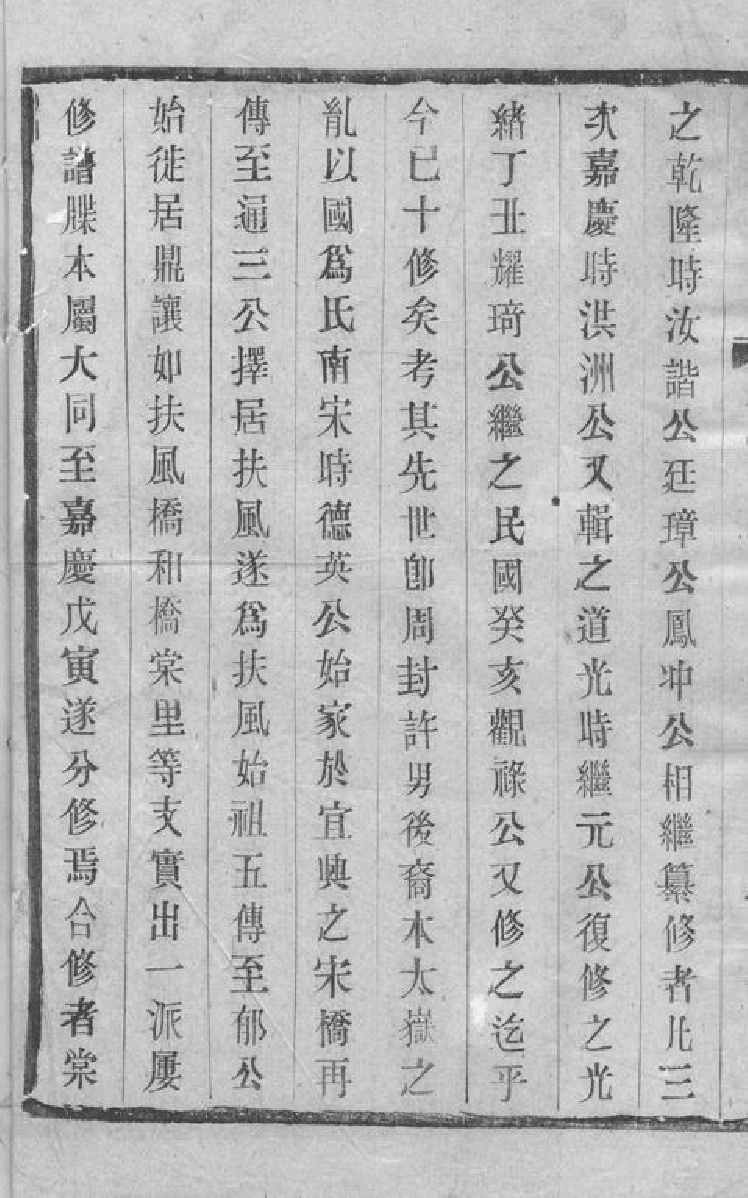 之乾隆時汝諧公廷璋公鳳冲公相繼纂修者凡三
次嘉慶時洪洲公又輯之道光時繼元公復修之光
緒丁丑耀琦公繼之民國癸亥觀祿公又修之迄乎
今已十修矣考其先世卽周封許男後裔本太嶽之
胤以國爲氏南宋時德英公始家於宜興之宋橋再
傳至通三公擇居扶風遂爲扶風始祖五傳至郁公
始徙居鼎讓如扶風橋和橋棠里等支實出一派屢
修譜牒本屬大同至嘉慶戊寅遂分修焉合修者棠